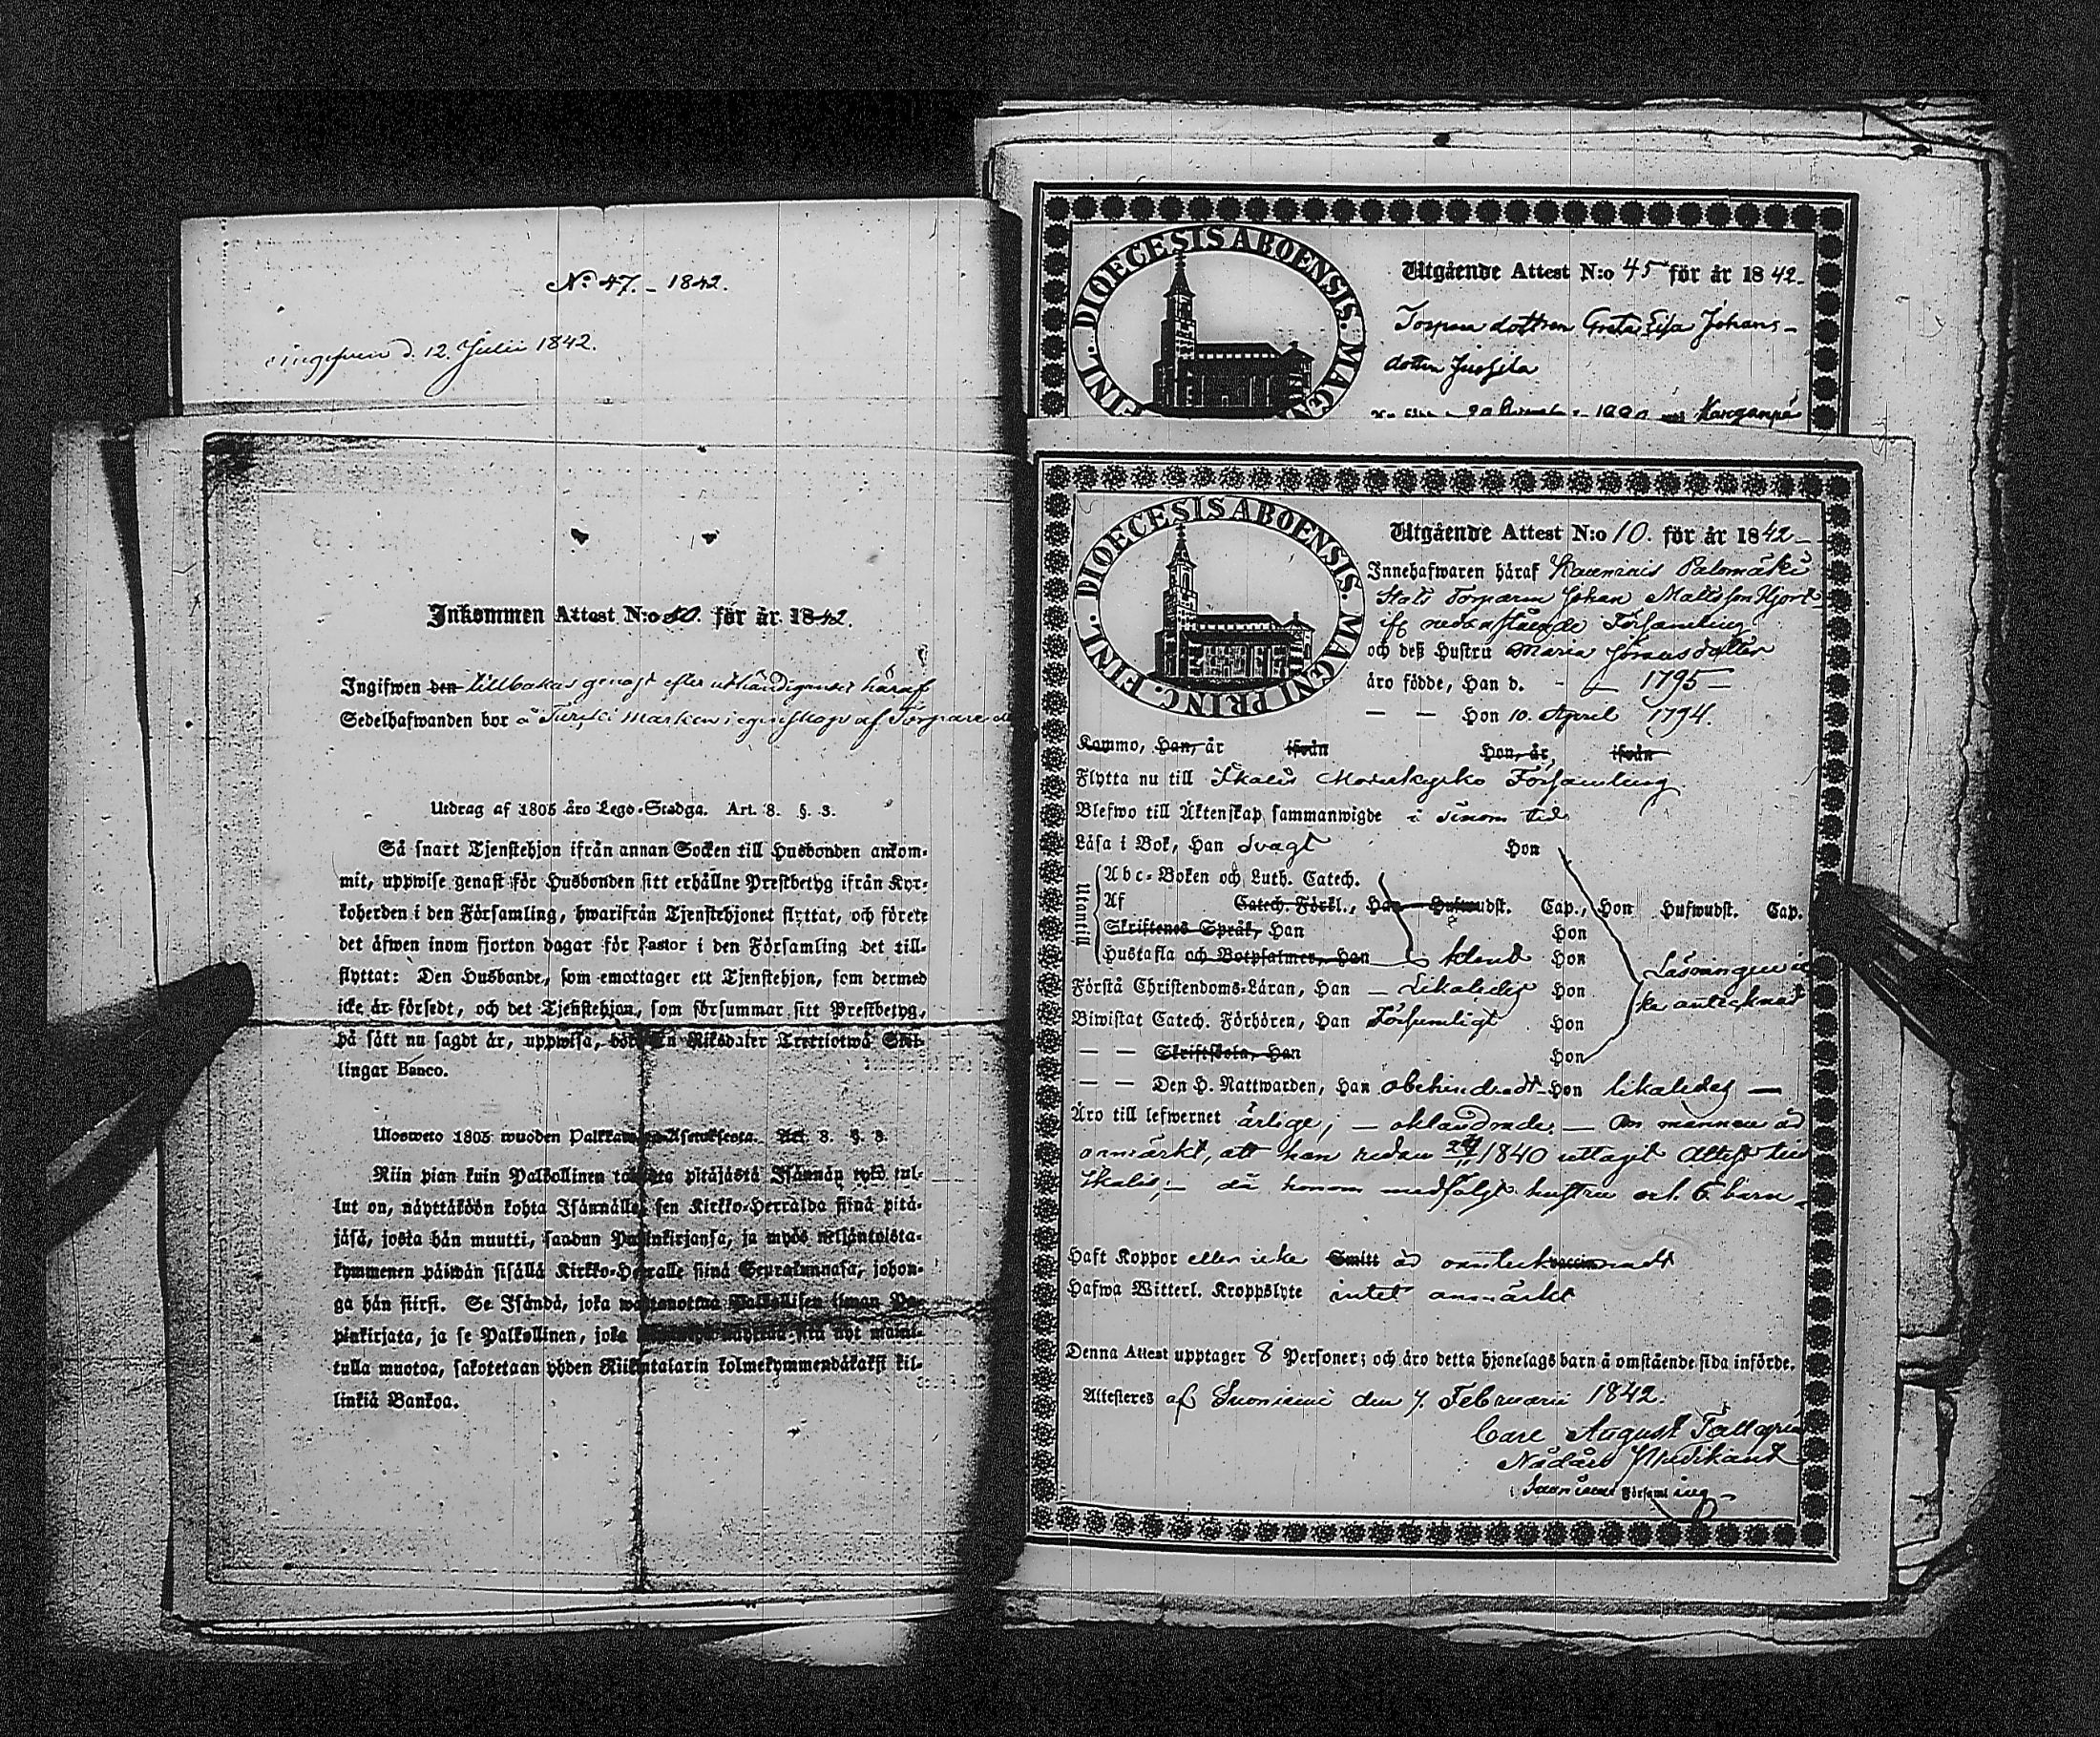 No 47. - 1842.
d. 12. Julii 1842.
Inkommen Attest N:o 50. för år 1842.
Ingifwen den tillbakas genast efter uthändigandet häraf
Sedelhafwanden bor å af Torpare
Utdrag af 1805 åro Lego-Stadga. Art. 8. §. 3.
Så snart Tjenstehjon ifrån annan Socken till Husbonden ankom-
mit, uppwise genast för Husbonden sitt erhållne Prestbetyg ifrån Kyr-
koherden i den Församling, hwarifrån Tjenstehjonet flyttat, och förete
det äfwen inom fjorton dagar för Pastor i den Församling det till-
flyttat: Den Husbonde, som emottager ett Tjenstehjon, som dermed
icke är försedt, och det Tjenstehjon, som försummar sitt Prestbetyg,
på sätt nu sagdt är, uppwisa, böte En Riksdaler Trettiotwå Skil-
lingar Banco.
Ulosweto 1805 wuoden Palkkawäen-Asetuksesta. Art. 8. §. 3.
Niin pian kuin Palkollinen toisesta pitäjästä Isännän työ tul-
lut on, näyttäköön kohta Isännälle, sen Kirkko-Herralda siinä pitä-
jäsä, josta hän muutti, saadun Papinkirjansa, ja myös neljäntoista-
kymmenen päiwän sisällä Kirkko-Herralle siinä Seurakunnasa, johon-
ga hän siirsi. Se Isändä, joka wastaanottaa Palkollisen ilman Pa-
pinkirjata, ja se Palkollinen, joka sitä nyt maini-
tulla muotoa, sakotetaan yhden Riikintalarin kolmekymmendäkaksi kil-
linkiä Bankoa.
DIOECESIS ABOENSIS. MAGN FINL.
Utgående Attest N:o 45 för år 1842-
Torpare dottren Greta Lisa Johans-
dotter Jussila
Kanganpä
DIOECESIS ABOENSIS. MAGNI PRINC. FINL.
Utgående Attest N:o 10. för år 1842-
Innehafwaren häraf Palomäki
Torparen Johan Mattsson Hjort
ifr. nedanstående Församling
och deß Hustru Maria Jöransdotter
äro födde, Han d. - - 1795-
— — Hon 10. April 1794.
Kommo, Han, år ifrån Hon, år, ifrån
Flytta nu till Ikalis Moderkyrko Församling
Blefwo till Äktenskap sammanwigde i sinom tid
Läsa i Bok, Han svagt Hon
Utantill
Abc-Boken och Luth. Catech.
Af Catech. Förkl., Han Hufwudst. Cap., Hon Hufwudst. Cap.
Skriftenes Språk, Han Hon
Hustafla och Botpsalmer, Han klent Hon
Läsningen ic
ke antecknad
Förstå Christendoms-Läran, Han - likaledes Hon
Biwistat Catech. Förhören, Han Försumligt Hon
— — Skriftskola, Han Hon
— — Den H. Nattwarden, Han obehindradt Hon likaledes —
Äro till lefwernet ärlige; — oklandrade. — Om mannen är
anmärkt, att han redan 24/11 1840 uttagit Attest till
Ikalis; — då honom medföljt hustru och 6 barn -
Haft Koppor eller icke Smitt är oanteckvaccinnadt
Hafwa Witterl. Kroppslyte intet anmärkt
Denna Attest upptager 8 Personer; och äro detta hjonelags barn å omstående sida införde.
Attesteras af Suoniemi den 7. Februarii 1842.
Carl August Tallgren
Nådårs Predikant
i Suoniemi Församling